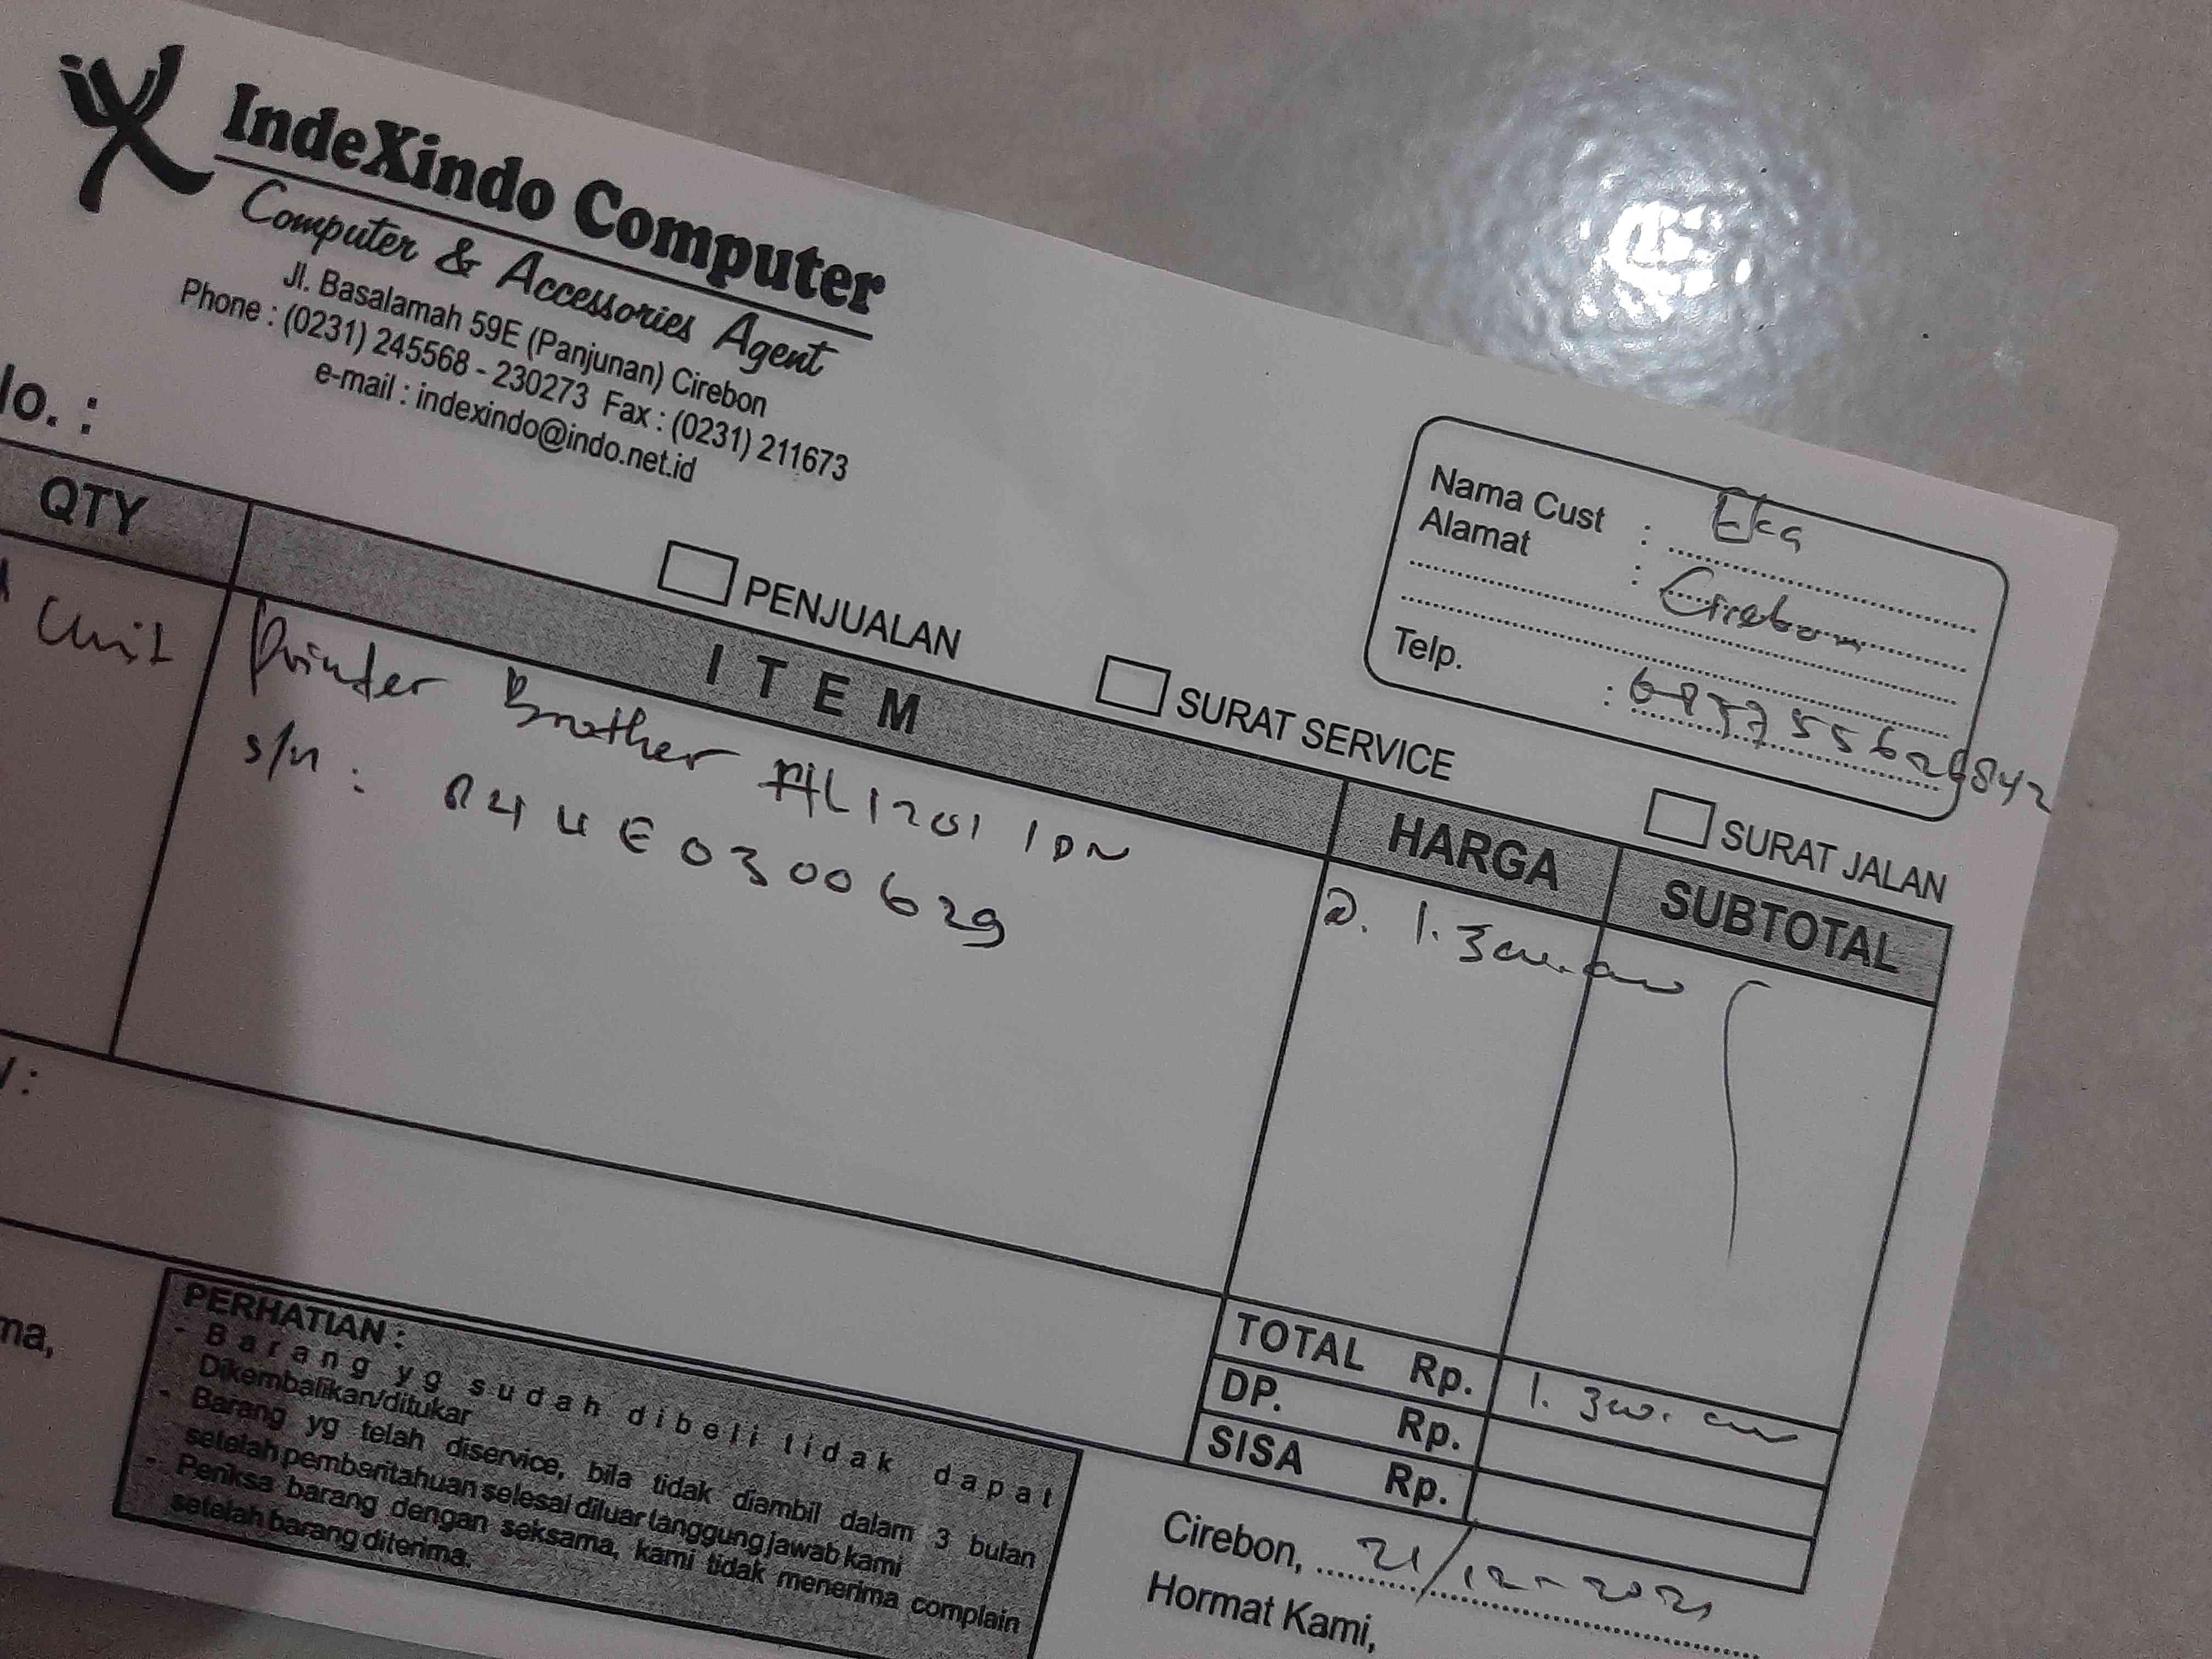 iX
IndeXindo Computer
Computer & Accessories Agent
Jl. Basalamah 59E (Panjunan) Cirebon
Phone : (0231) 245568 - 230273 Fax : (0231) 211673
e-mail : indexindo@indo.net.id
Nama Cust : Eka
Alamat : Cirebon
Telp. :
PENJUALAN
SURAT SERVICE
SURAT JALAN
QTY ITEM HARGA SUBTOTAL
Unit Printer Brother HL1201 IDN @. 1.300.000
s/n : E0300629
TOTAL Rp. 1.300.000
DP. Rp.
SISA Rp.
PERHATIAN :
- Barang yg sudah dibeli tidak dapat
Dikembalikan/ditukar
- Barang yg telah diservice, bila tidak diambil dalam 3 bulan
setelah pemberitahuan selesai diluar tanggung jawab kami
- Periksa barang dengan seksama, kami tidak menerima complain
setelah barang diterima.
Cirebon, 21/12-2021
Hormat Kami,